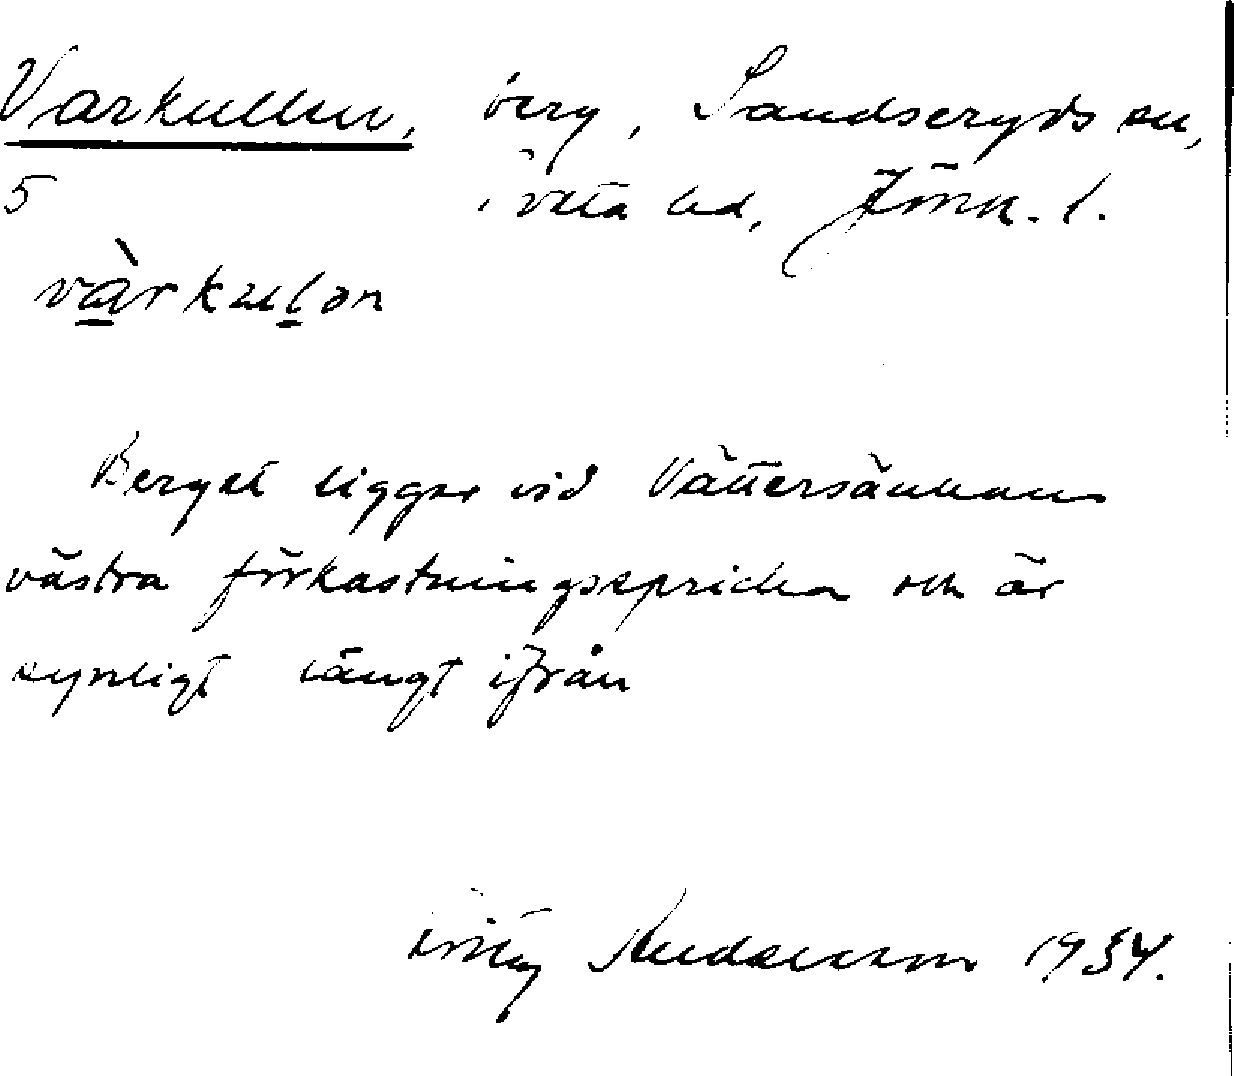 Varkullen, berg, Sandseryds sn,
5 Tveta hd, Jönk. l.
và̱rkul̲ən
Berget ligger vid Vättersänkans
västra förkastningsspricka och är
synligt långt ifrån
Knudsen 1934.